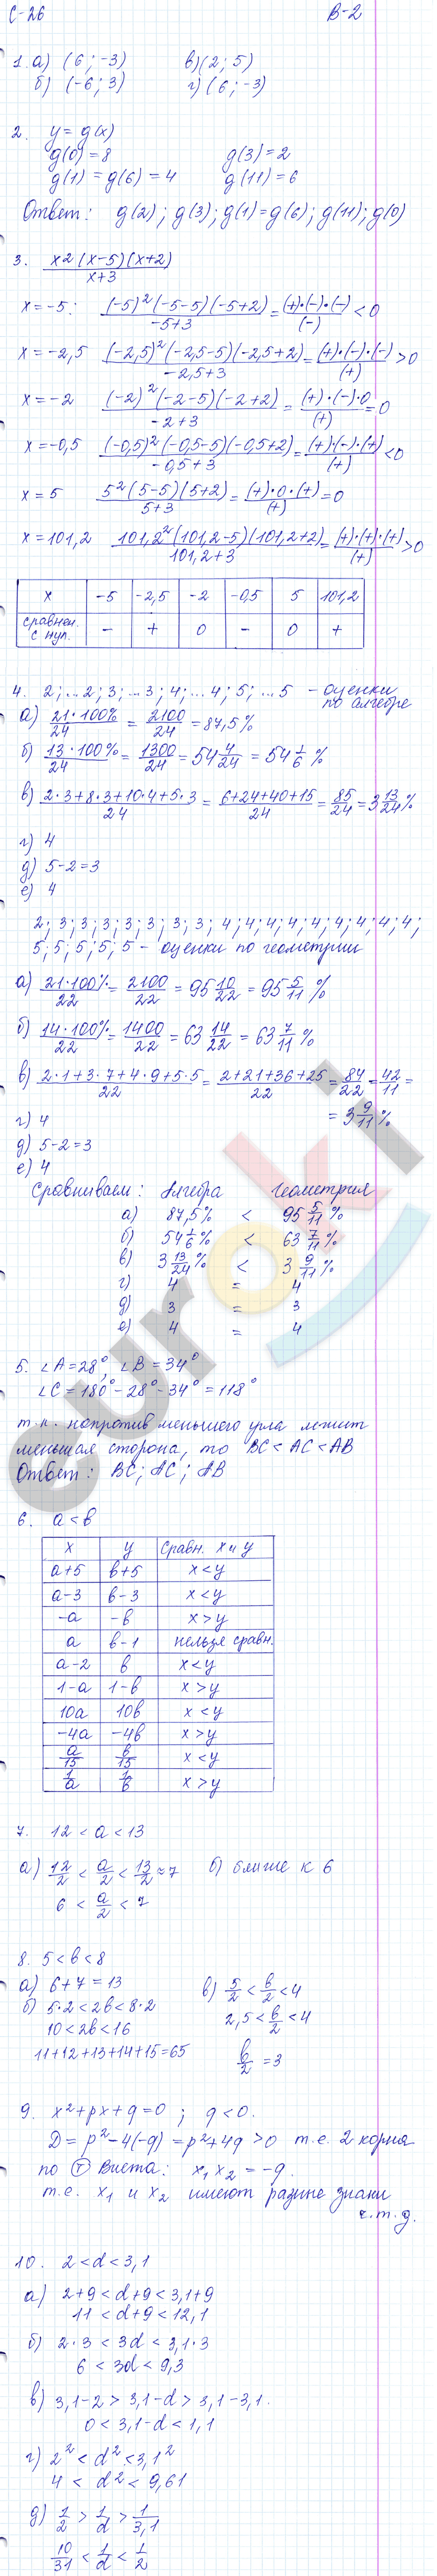 С-26 В-2
1. а) (6; -3) в) (2; 5)
б) (-6; 3) г) (6; -3)
2. y = g(x)
g(0) = 8 g(3) = 2
g(1) = g(6) = 4 g(11) = 6
Ответ: g(2); g(3); g(1) = g(6); g(11); g(0)
3. x2 (x-5)(x+2) / x+3
x = -5: (-5)²(-5-5)(-5+2) / -5+3 = (+)·(-)·(-) / (-) < 0
x = -2,5 (-2,5)²(-2,5-5)(-2,5+2) / -2,5+3 = (+)·(-)·(-) / (+) > 0
x = -2 (-2)²(-2-5)(-2+2) / -2+3 = (+)·(-)·0 / (+) = 0
x = -0,5 (-0,5)²(-0,5-5)(-0,5+2) / -0,5+3 = (+)·(-)·(+) / (+) < 0
x = 5 5²(5-5)(5+2) / 5+3 = (+)·0·(+) / (+) = 0
x = 101,2 101,2²(101,2-5)(101,2+2) / 101,2+3 = (+)·(+)·(+) / (+) > 0
x -5 -2,5 -2 -0,5 5 101,2
сравнен. с нул. - + 0 - 0 +
4. 2; ...2; 3; ...3; 4; ...4; 5; ...5 - оценки
по алгебре
а) 21·100% / 24 = 2100 / 24 = 87,5%
б) 13·100% / 24 = 1300 / 24 = 54 4/24 = 54 1/6 %
в) 2·3+8·3+10·4+5·3 / 24 = 6+24+40+15 / 24 = 85/24 = 3 13/24 %
г) 4
д) 5-2 = 3
е) 4
2; 3; 3; 3; 3; 3; 3; 3; 4; 4; 4; 4; 4; 4; 4; 4; 4;
5; 5; 5; 5; 5 - оценки по геометрии
а) 21·100% / 22 = 2100 / 22 = 95 10/22 = 95 5/11 %
б) 14·100% / 22 = 1400 / 22 = 63 14/22 = 63 7/11 %
в) 2·1+3·7+4·9+5·5 / 22 = 2+21+36+25 / 22 = 84/22 = 42/11 =
= 3 9/11 %
г) 4
д) 5-2 = 3
е) 4
Сравниваем: Алгебра Геометрия
а) 87,5% < 95 5/11 %
б) 54 1/6 % < 63 7/11 %
в) 3 13/24 % < 3 9/11 %
г) 4 = 4
д) 3 = 3
е) 4 = 4
5. ∠A = 28°, ∠B = 34°
∠C = 180° - 28° - 34° = 118°
т.к. напротив меньшего угла лежит
меньшая сторона, то BC < AC < AB
Ответ: BC; AC; AB
6. a < b
x y Сравн. x и y
a+5 b+5 x < y
a-3 b-3 x < y
-a -b x > y
a b-1 нельзя сравн.
a-2 b x < y
1-a 1-b x > y
10a 10b x < y
-4a -4b x > y
a/15 b/15 x < y
1/a 1/b x > y
7. 12 < a < 13
а) 12/2 < a/2 < 13/2 ≈ 7 б) ближе к 6
6 < a/2 < 7
8. 5 < b < 8
а) 6+7 = 13 в) 5/2 < b/2 < 4
б) 5·2 < 2b < 8·2 2,5 < b/2 < 4
10 < 2b < 16
11+12+13+14+15 = 65 b/2 = 3
9. x² + px + q = 0 ; q < 0.
D = p² - 4(-q) = p² + 4q > 0 т.е. 2 корня
по Т Виета: x₁ x₂ = -q.
т.е. x₁ и x₂ имеют разные знаки
ч.т.д.
10. 2 < d < 3,1
а) 2+9 < d+9 < 3,1+9
11 < d+9 < 12,1
б) 2·3 < 3d < 3,1·3
6 < 3d < 9,3
в) 3,1-2 > 3,1-d > 3,1-3,1.
0 < 3,1-d < 1,1
г) 2² < d² < 3,1²
4 < d² < 9,61
д) 1/2 > 1/d > 1/3,1
10/31 < 1/d < 1/2
euroki